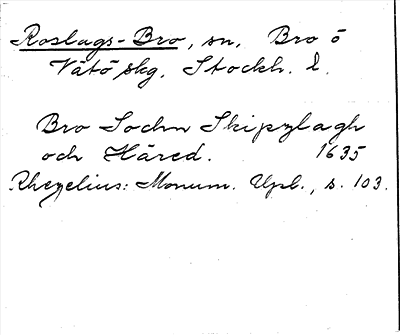 Roslags-Bro, sn, Bro o
Vätö skg. Stockh. l.
Bro Sochn Skipzlagh
och Häred. 1635
Rhezelius: Monum. Upl., s. 103.